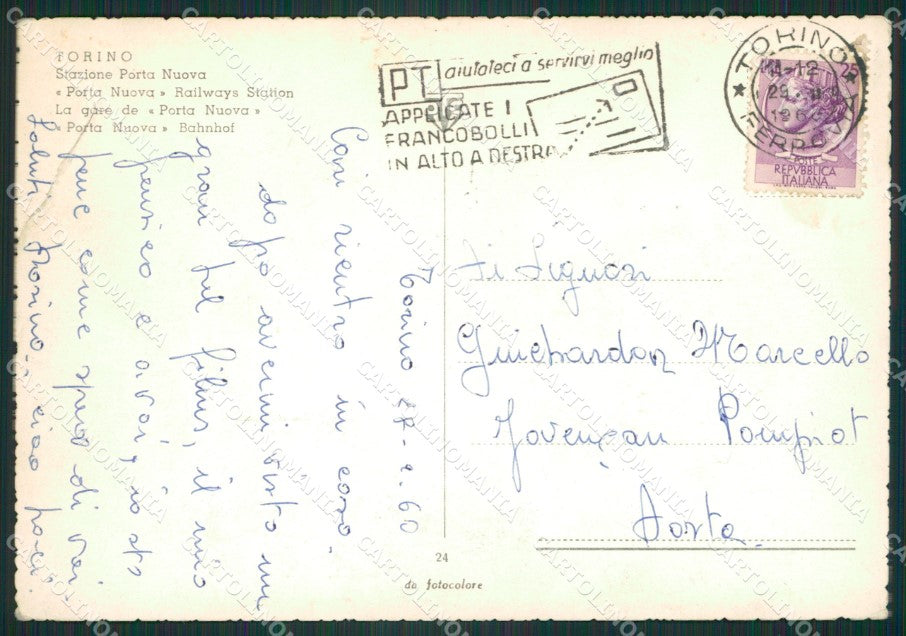 TORINO
Stazione Porta Nuova
« Porta Nuova » Railways Station
La gare de « Porta Nuova »
« Porta Nuova » Bahnhof
PT aiutateci a servirvi meglio
APPLICATE I
FRANCOBOLLI
IN ALTO A DESTRA
TORINO
FERROVIA
25
POSTE
REPVBBLICA
ITALIANA
Torino 27-2-60
Cari rientro in casa,
dopo avermi visto un
gran bel film, il mio
pensiero è a voi, io sto
bene come spero di voi.
Saluti ciao
Ai Signori
Guichardaz Marcello
Jovençan Pompiot
Aosta
24
da fotocolore
CARTOLINOMANIA